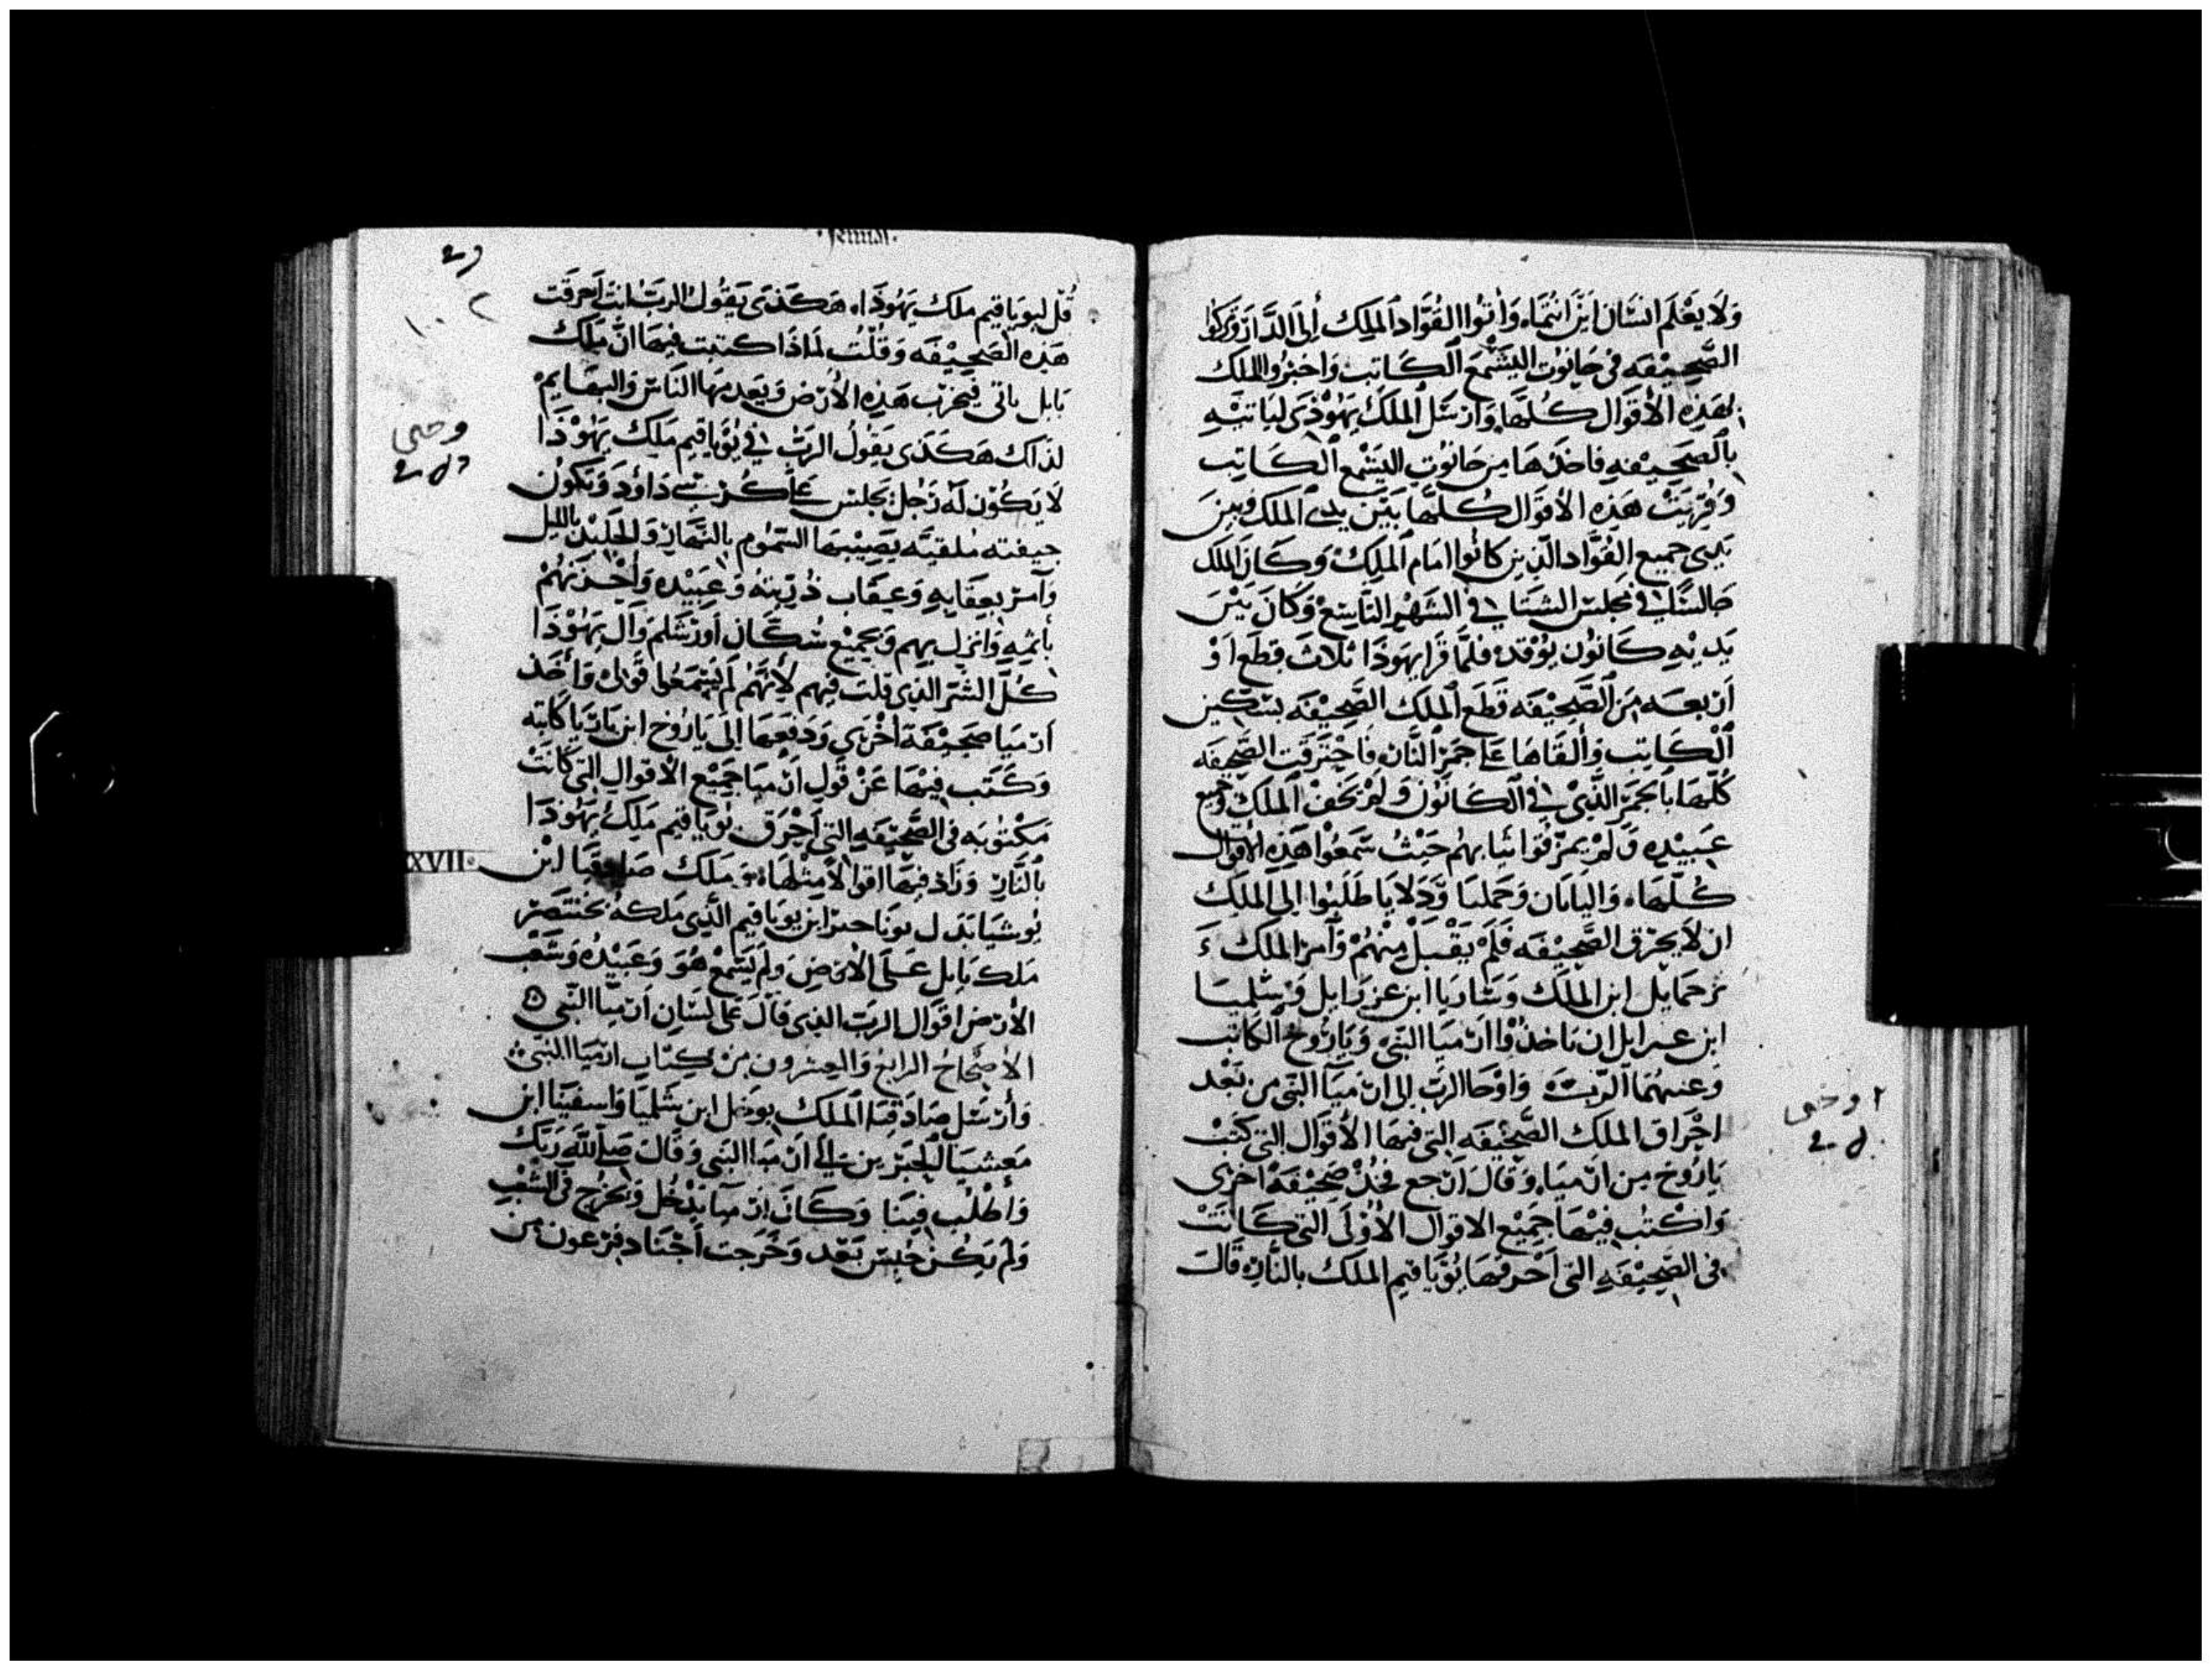 وَلَا يَعْلَم انسَان اَيْنَ انْتُمَاء وَاتوُا القُوَّاد اَلمَلِك اِلىَ الدَّار وَتَركوُا
الصَّحِيْفَه فى حَانوُت اليَشْمَع اَلكَاتِب وَاخبَرُوا الملك
بهَذِه الأَقوَال كُلّهَا، وَارسَل اَلملكُ يَهُوْذَى ليَاتيْهِ
بالصَحِيْفهِ فاخذَهَا مِن حَانوُتِ اليَشْمع الكَاتِب
وَقُرِيَتْ هَذِه الأقوَال كُلّهَا بَيْن يدي الملك وَبين
يدي جميع القوَّاد الَّذِين كانوُا امَام اَلملِك وَكَانَ الملك
جَالسًا في مجلِس الشتَا في الشَهْرِ التَاسِع وَكَانَ بَيْنَ
يَديْهِ كَانوُن يوُقد فلمَّا قَرَا يهوَذَا ثلاث قِطَع اَوْ
اَربعه مِنَ اَلصَّحِيْفَه قَطَع اَلملك الصَّحِيْفَه بسكين
اَلكَاتِب وَأَلقَاهَا عَلى جَمْرِ النَّار فَاحْتَرقَت الصَّحِيفَه
كُلّهَا بالجَمْرِ الَّذِيْ في اَلكَانوُن وَلمْ يَخفْ اَلملك وَجميع
عَبيْدِه وَلمْ يمزّقوُا ثيَابهُم حَيْثُ سَمَعُوْا هَذِه الأقوال
كُلّهَا، وَاليَانَان وَجَمليَا وَدَلايَا طَلَبُوا اِلى اَلملِك
ان لاَ يحرق الصَّحِيْفَه فَلَمْ يَقْبل مِنْهُمْ وَاَمر الملك
يرحمَايل ابن الملك وَسَارَيا ابن عزرَايل وَسَلميَا
ابن عبرايل ان يَاخذُوْا ارميَا النبَى وَبَارُوخ الكَاتب
وَغيبهُمَا الرَّبّ وَاوْحَا الرَبّ اِلى ارميَا النَبّى من بَعْد
احْرَاق الملك الصَّحِيْفَه التى فيهَا الأَقوَال التى كتَبْ
بَارُوخ من ارميَا، وَقَالَ ارجع فخُذْ صَحِيْفَه اخرى
وَاكْتبْ فِيْهَا جَمِيْع الاقوَال الأُوْلَى التى كَانَتْ
فى الصَّحِيْفَه التى اَحْرقهَا يُوْيَاقيم الملك بالنَّارِ، قَالَ
قُل ليوُيَاقيم ملك يَهُوذَا، هَكَذَى يَقوُل الربّ انتَ اَحرقت
هَذِه الصَحِيْفَه وَقلْتَ لمَاذَا كتبت فيهَا انّ مَلِك
بَابل ياتى فيخرب هَذِه الأَرض وَيَعدم مِنهَا النَاسْ وَالبهَايم
لذَاك هَكَذَى يَقوُلُ الرَبّ في يوُيَاقيم مَلِك يَهُوْذَا
لَا يَكوُن لَه رَجل يجلس عَلى كُرسي دَاوُد وَتكوُن
جيفته ملقيَّه يصَيْبهَا السَمُوم بالنَهَار وَالجَليْد بالليل
وَآمر بعقَابهِ وَعقَاب ذُريّته وَعَبيْده وَاُجزيهُمْ
بأثمهِ وَانزل بهم وَبجَميْع سُكَّان اورشَلم وَآل يَهُوْذَا
كُلّ الشَر الذِى قلت فيهم لأنّهَم لَمْ يَسْمَعوُا قَولى وَأخذ
ارميَا صَحِيْفَة اخرَى وَدفعَهَا اِلى بَارُوخ ابن ناريَا كاتبه
وَكَتب فِيْهَا عَنْ قوَلِ ارْميَا جَميْع الأقوَال التى كَانَتْ
مَكْتوُبَه فى الصَّحِيْفَهِ التى اَحْرَق يوُيَاقيم مَلك يَهُوذَا
بالنَار وَزَاد فيهَا اقوَالاً مِثْلهَا وَملك صَادقيَا ابن
يُوشيَا بَدَل يوُيَاحين ابن يويَاقيم الَّذِى مَلكهُ بختنصر
ملك بَابل عَلَى الأَرْض وَلم يَسْمعْ هُوَ وَعَبيْدُه وَشَعْب
الأرض اقوَال الربّ الذى قَالَ عَلى لسَان ارميَّا النَبّى
الأصحَاحُ الرابع وَالعشرون من كِتَاب ارميَا النبَى
وَأرسَل صَادقيَا اَلملك يوخل ابن شَلميَا وَاسفنيَا ابن
مَعشيَا الحَبر بن عَلى ارميَا النبى وَقَالَ صَلّ اللّه رَبّك
وَاطْلب فِيْنَا وَكَانَ ارميَا يَدْخُل وَيَخرُج فى الشَعْب
وَلم يَكُن حُبس بَعْد وَخَرجت اَجْنَاد فِرعون من
XXVII